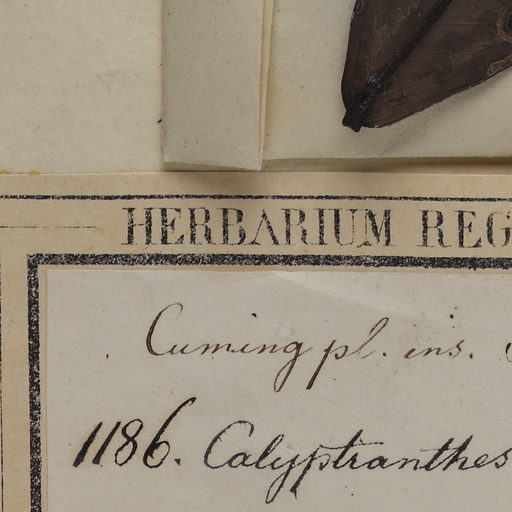 HERBARIUM REG
Cuming pl. ins.
1186. Calyptranthes